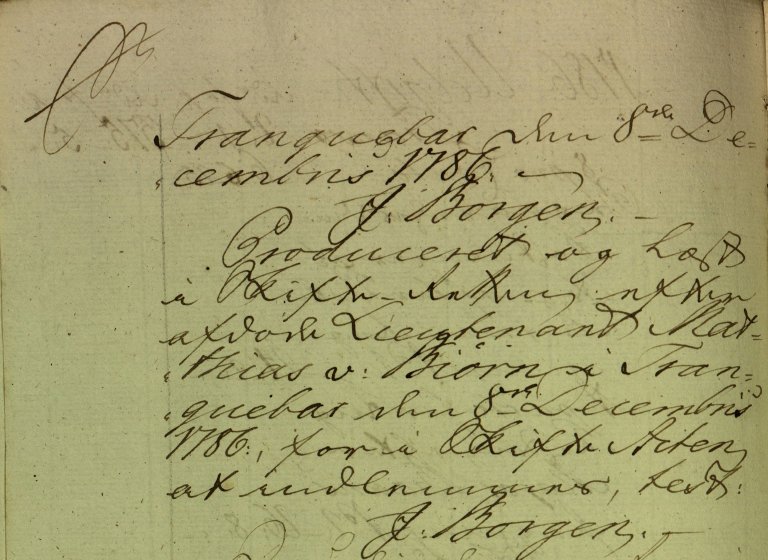 Tranquebar den 8de De=
cembris 1786.
J. Borgen.
Produceret og Læst
i Skifte-Retten efter
afdøde Lieutenant Mat=
thias v: Biørn i Tran=
quebar den 8de Decembris
1786, for i Skifte Acten
at indlemmes, test:
J. Borgen.